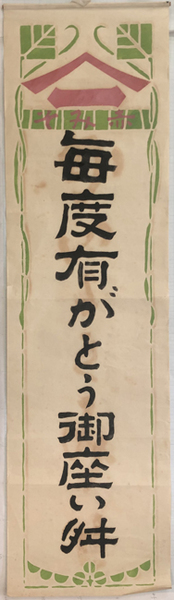 一
毎度有がとう御座い舛